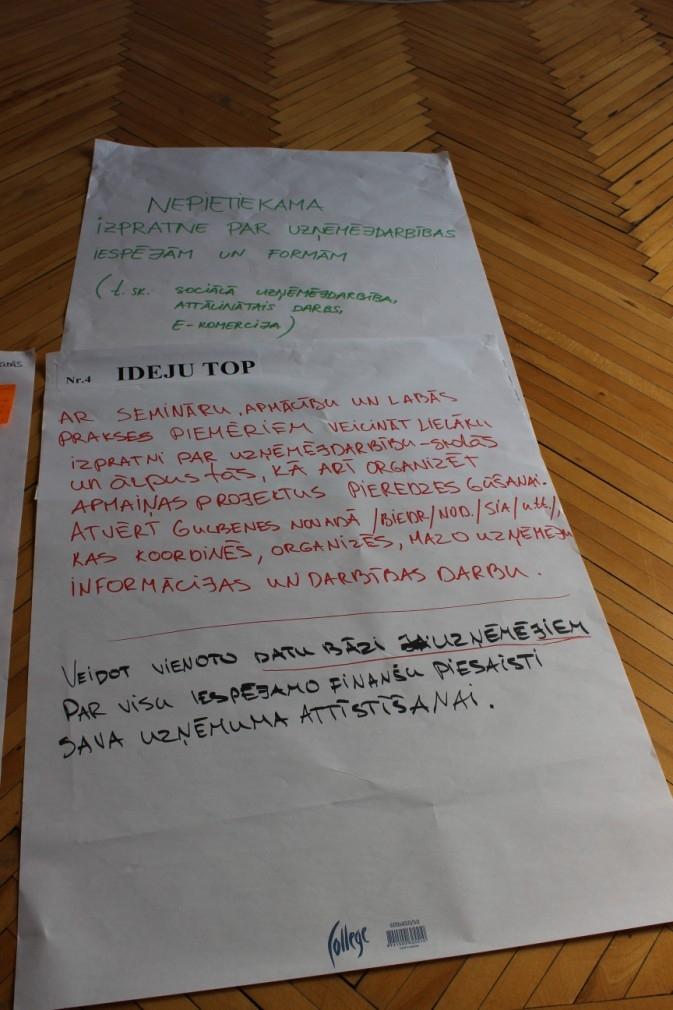 NEPIETIEKAMA
IZPRATNE PAR UZŅĒMĒJDARBĪBAS
IESPĒJĀM UN FORMĀM
(t.sk. SOCIĀLĀ UZŅĒMĒJDARBĪBA,
ATTĀLINĀTAIS DARBS,
E-KOMERCIJA)
Nr.4 IDEJU TOP
AR SEMINĀRU, APMĀCĪBU UN LABĀS
PRAKSES PIEMĒRIEM VEICINĀT LIELĀKU
IZPRATNI PAR UZŅĒMĒJDARBĪBU-skolās
un ārpus tās, KĀ ARĪ ORGANIZĒT
APMAIŅAS PROJEKTUS PIEREDZES GŪŠANAI.
ATVĒRT GULBENES NOVADĀ /BIEDR/NOD./SIA/utt./,
KAS KOORDINĒS, ORGANIZĒS, MAZO UZŅĒMĒJU
INFORMĀCIJAS UN DARBĪBAS DARBU.
VEIDOT VIENOTO DATU BĀZI UZŅĒMĒJIEM
PAR VISU IESPĒJAMO FINANŠU PIESAISTI
SAVA UZŅĒMUMA ATTĪSTĪŠANAI.
College